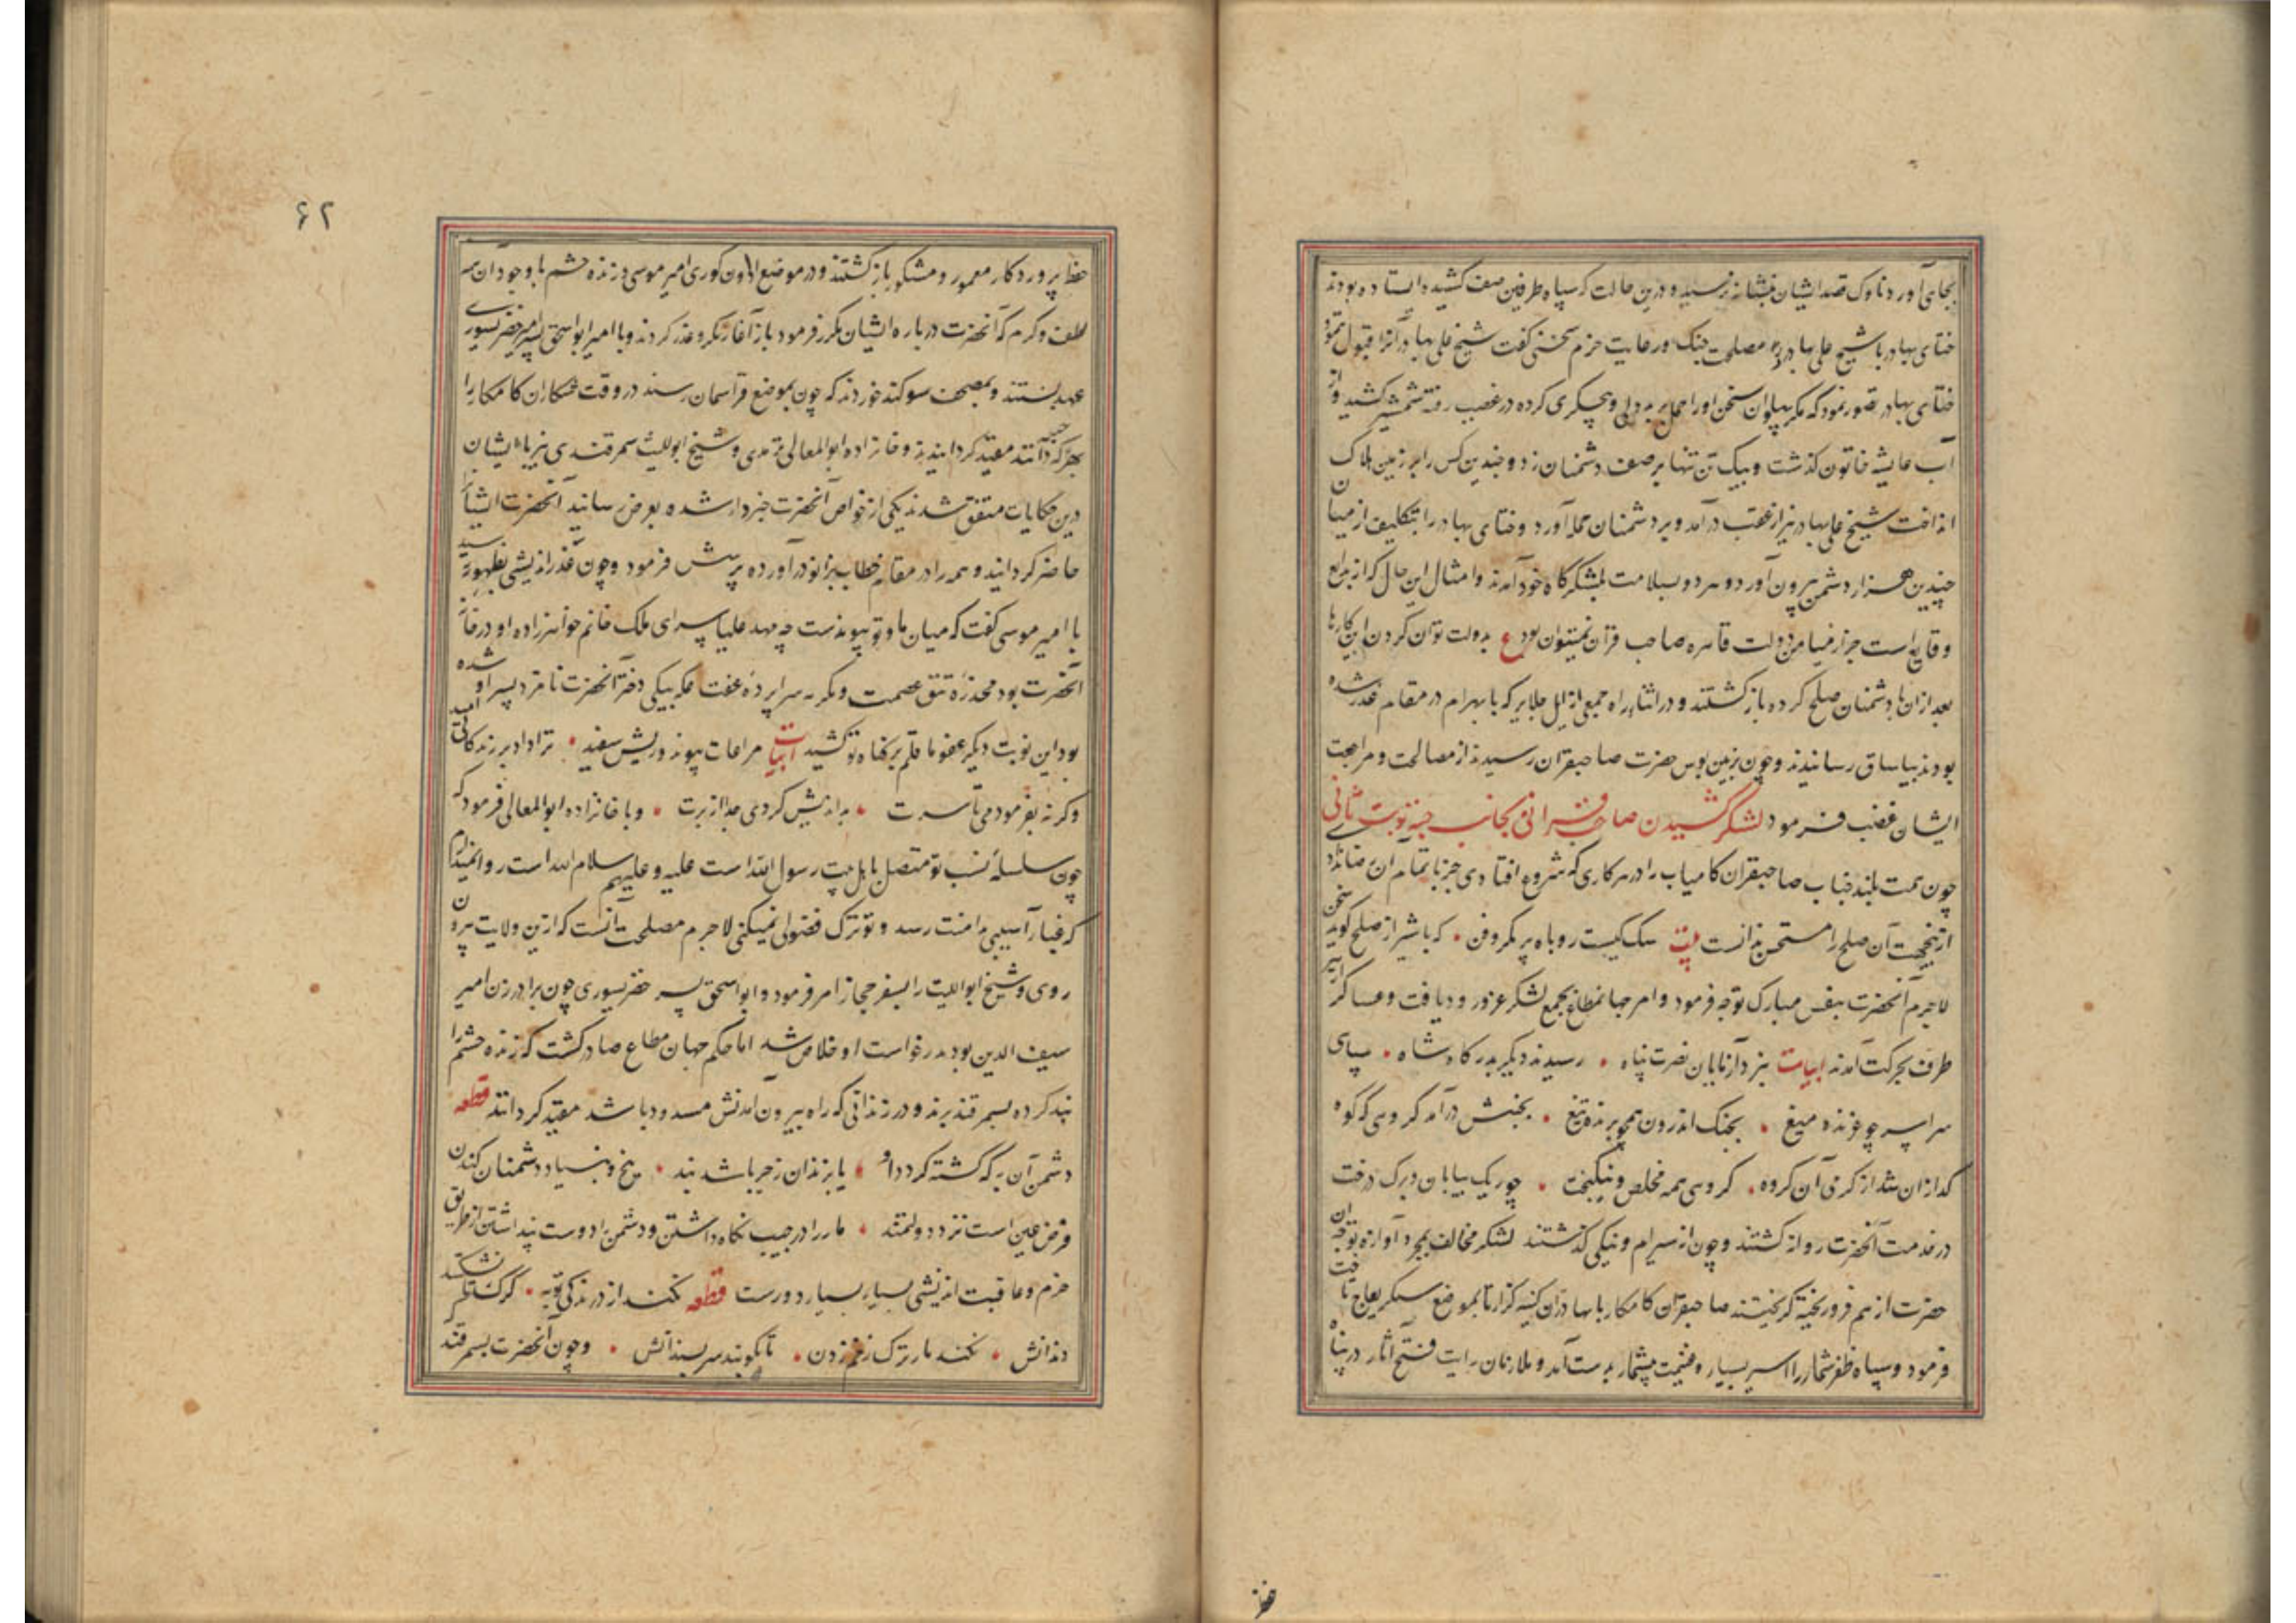 بجای آورد ناوک قصد ایشان بنشانه نرسید و درین حالت که سپاه طرفین صف کشیده ایستاده بودند
ختای بهادر با شیخ علی بهادر در مصلحت جنک و رعایت حزم سخنی گفت شیخ علی بهادر آنرا قبول ننمود
ختای بهادر تصور نمود که مکر پهلوان سخن او را حمل بر بددلی و بیجکری کرده در غضب رفته شمشیر کشید و از
آب عایشه خاتون کذشت و بیک تن تنها بر صف دشمنان زد و چندین کس را بر زمین هلاک
انداخت شیخ علی بهادر نیز از عقب درآمد و بر دشمنان حمله آورد و ختای بهادر را بتکلیف از میان
چندین هزار دشمن بیرون آورد و هر دو بسلامت بلشکرگاه خود آمدند و امثال این حال که از بدایع
وقایع است جز از میامن دولت قاهره صاحب قران نمیتوان بود ع بدولت توان کردن این کارها
بعد ازان با دشمنان صلح کرده بازکشتند و در اثناء راه جمعی از ایل جلایر که با بهرام در مقام غدر شده
بودند بیاساق رسانیدند و چون بزمین بوس حضرت صاحبقران رسیدند از مصالحت و مراجعت
ایشان غضب فرمود لشکر کشیدن صاحب قرانی بجانب جته نوبت ثانی
چون همت بلند جناب صاحبقران کامیاب را در هر کاری که شروع افتادی جز باتمام آن رضا ندادی
ازین جهت آن صلح را مستحسن ندانست بیت سک کیست روباه پر مکر و فن • که با شیر از صلح کوید سخن
لاجرم آنحضرت بنفس مبارک توجه فرمود و امر جهانمطاع بجمع لشکر عز ورود یافت و عساکر از هر
طرف بحرکت آمدند ابیات نبرد آزمایان نصرت پناه • رسیدند دیکر بدرکاه شاه • سپاهی
سراسر چو غرنده میغ • بجنک اندرون همچو برنده تیغ • بجنبش درآمد کروهی که کوه
کدازان شد از کرمی آن کروه • کروهی همه مخلص و نیکبخت • چو ریک بیابان و برک درخت
در خدمت آنحضرت روان کشتند و چون از سیرام و ینکی کذشتند لشکر مخالف بمجرد آوازه توجه آن
حضرت از هم فرو ریخته کریختند صاحبقران کامکار با بهادران کینه کزار تا بموضع سنکریغاج تاخت
فرمود و سپاه ظفرشمار را اسیر بسیار و غنیمت بیشمار بدست آمد و ملازمان رایت فتح آثار در پناه
حفظ
۶۲
حفظ پروردکار معمور و مشکور بازکشتند و در موضع الاون کوری امیر موسی و زنده حشم با وجود آن همه
لطف و کرم که آنحضرت درباره ایشان مکرر فرمود باز آغاز مکر و غدر کردند و با امیر ابواسحق پسر امیر خضر یسوری
عهد بستند و بمصحف سوکند خوردند که چون بموضع قراسمان رسند در وقت شکار آن کامکار را
بهر حیله که دانند مقید کردانیدند و خانزاده ابوالمعالی ترمدی و شیخ ابولیث سمرقندی نیز با ایشان
درین حکایات متفق شدند یکی از خواص آنحضرت خبردار شده بعرض رسانید آنحضرت ایشانرا
حاضر کردانید و همه را در مقام خطاب بزانو درآورده پرسش فرمود و چون غدراندیشی بظهور رسید
با امیر موسی گفت که میان ما و تو پیوندست چه مهد علیا سرای ملک خانم خواهرزاده او در خانه
آنحضرت بود و مخدره تتق عصمت و مکرمه سراپرده عفت عکه بیکی دختر آنحضرت نامزد پسر او شده
بود این نوبت دیکر عفو ما قلم بر کناه تو کشید ابیات مراعات پیوند و ریش سفید • ترا داد بر زندکانی امید
وکرنه بفرمودمی تا سرت • بداندیش کردی جدا از برت • و با خانزاده ابوالمعالی فرمود که
چون سلسله نسب تو متصل باهل بیت رسول الله است علیه و علیهم سلام الله است روا نمیدارم
که غبار آسیبی بدامنت رسد و تو ترک فضولی نمیکنی لاجرم مصلحت آنست که ازین ولایت بیرون
روی و شیخ ابواللیث را بسفر حجاز امر فرمود و ابواسحق پسر خضر یسوری چون برادر زن امیر
سیف الدین بود بدرخواست او خلاص شد اما حکم جهان مطاع صادر کشت که زنده حشم را
بند کرده بسمرقند برند و در زندانی که راه بیرون آمدنش مسدود باشد مقید کردانند قطعه
دشمن آن به که کشته کردد او • یا بزندان زجر باشد بند • بیخ و بنیاد دشمنان کندن
فرض عین است نزد دولتمند • مار را در جیب نکاه داشتن و دشمن را دوست پنداشتن از طریق
حزم و عاقبت اندیشی بسیار بسیار دورست قطعه نکند از درندکی توبه • کرک تا نشکنند
دندانش • نکند مار ترک زخم زدن • تا نکوبند سر بسندانش • و چون آنحضرت بسمرقند